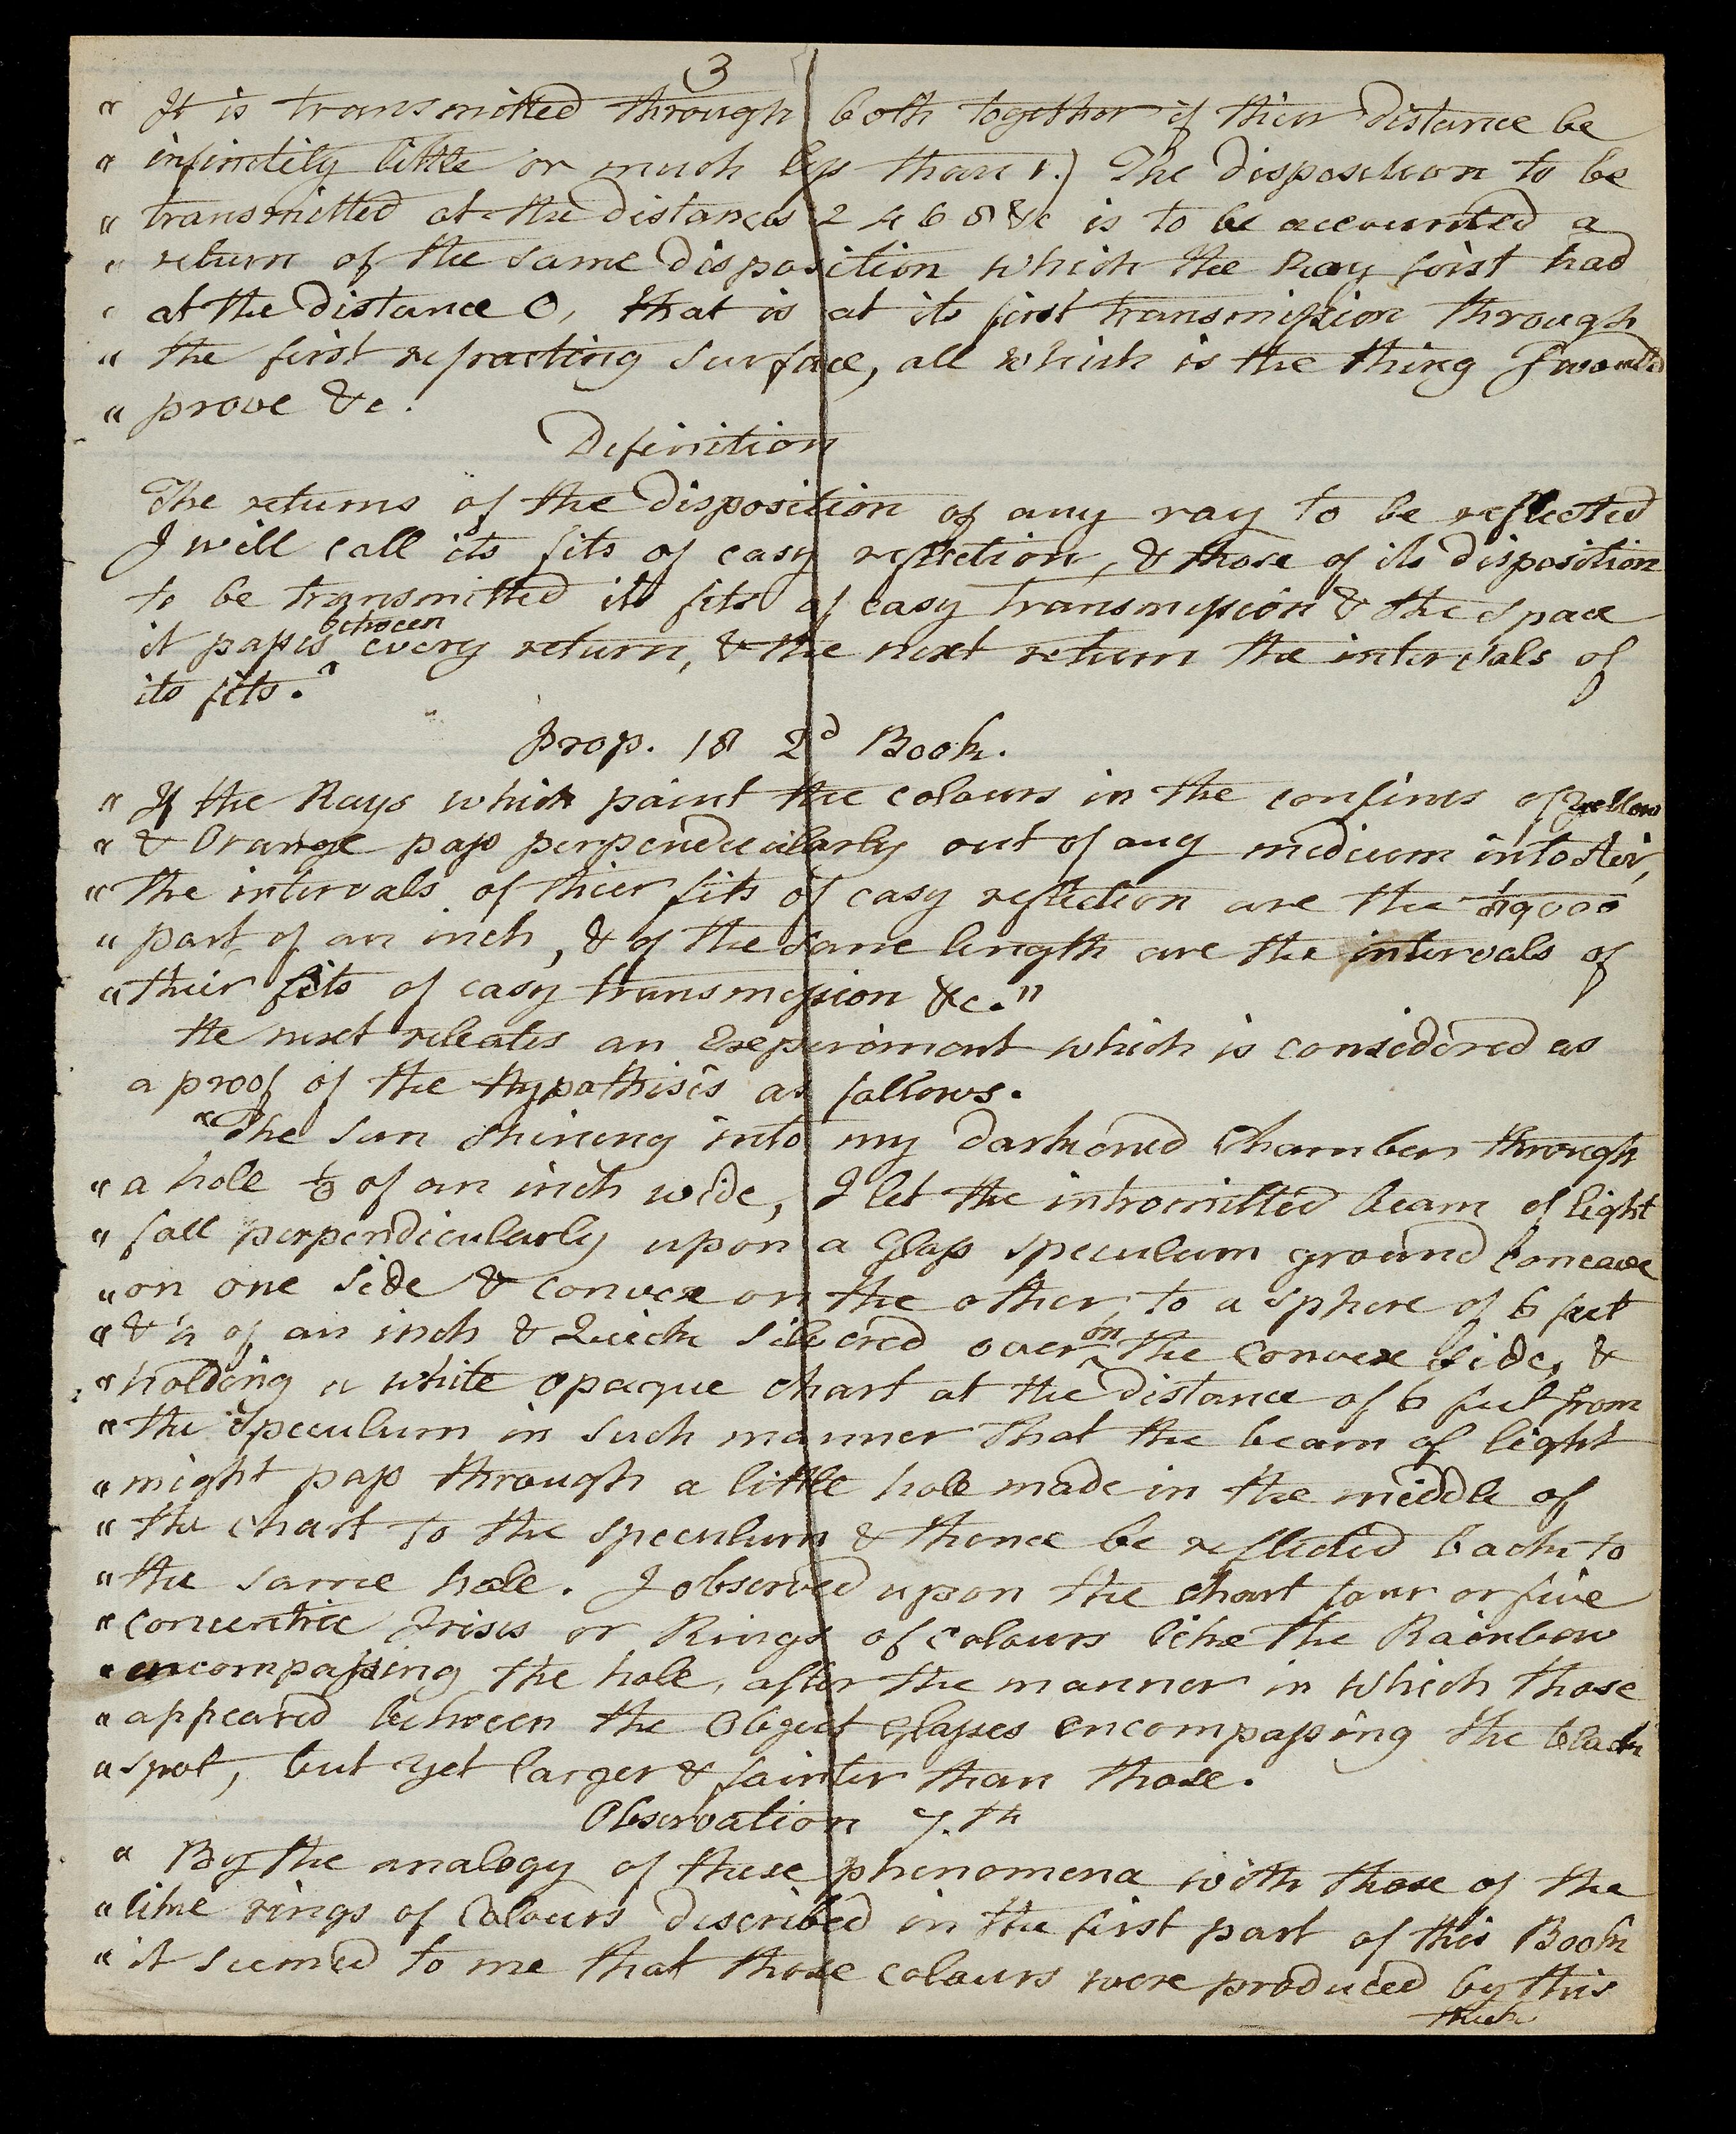 3
" It is transmitted through both together if thier distance be
" infinitily little or much less than 1.) The disposition to be
" transmitted at the distances 2 4 6 8 &c is to be accounted a
" return of the same disposition which the Ray first had
" at the distance 0, that is at its first transmission through
" the first refracting surface, all which is the thing I would
" prove &c.
Definition
The returns of the disposition of any ray to be reflected
I will call its fits of easy reflection, & those of its disposition
to be transmitted its fits of easy transmission & the space
it passes between every return, & the next return the intervals of
its fits."
Prop. 18 2d Book.
" If the Rays which paint the colours in the confines of yellow
" & Orange pass perpendicularly out of any medium into Air,
" the intervals of thier fits of easy reflection are the 1/89000
" part of an inch, & of the same length are the intervals of
" their fits of easy transmission &c."
He next releates an Experiment which is considered as
a proof of the Hypothisis as follows.
"The sun shining into my darkened Chamber through
" a hole 1/3 of an inch wide, I let the intromitted beam of light
" fall perpendicularly upon a Glass speculum ground Concave
" on one side & convex on the other, to a sphere of 6 feet
" & 1/4 of an inch & Quick silvered over on the Convex side, &
" holding a white opaque chart at the distance of 6 feet from
" the Speculum in such manner that the beam of light
" might pass through a little hole made in the middle of
" the chart to the speculum & thence be reflected back to
" the same hole. I observed upon the chart four or five
" concentric Irises or Rings of colours like the Rainbow
" encompassing the hole, after the manner in which those
" appeared between the Object glasses encompassing the black
" spot, but yet larger & fainter than those.
Observation 7.th
" By the analogy of these phenomena with those of the
" like rings of Colours described in the first part of this Book
" it seemed to me that those colours were produced by this
thick